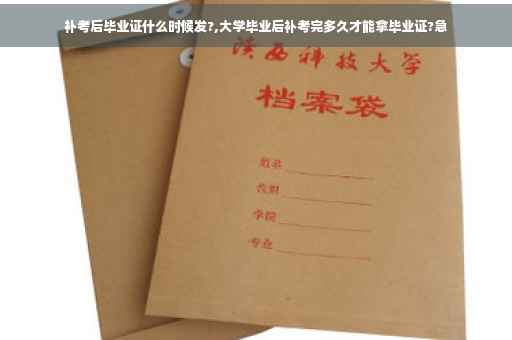 补考后毕业证什么时候发?,大学毕业后补考完多久才能拿毕业证?急
陕西科技大学
档案袋
姓名
性别
学院
专业